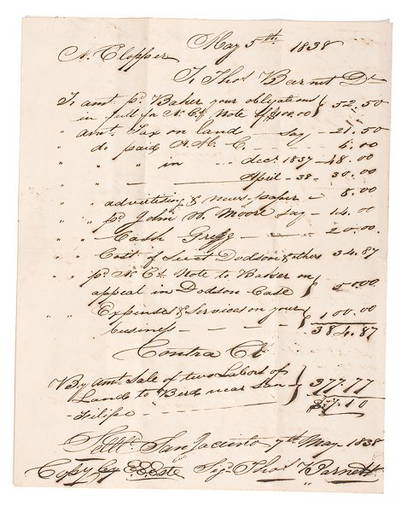 May 5th 1838
N. Clopper
To Thos Barnet Dr
To amt pd Baker your obligations
in full for N. Cs Note $100.00 } 52.50
" amt Tax on land — say — 21.50
" do paid A. H. C. — 6.00
" " in — dec. 1837 — 48.00
" " — April — 38 — 30.00
" advertising & news-paper — 8.00
" pd John W. Moore say — 14.00
" Cash — 20.00
" Cost of Suit Dodson & others 34.87
" pd N. Cs Note to Baker on
appeal in Dodson Case } 50.00
" Expenses & Services on your
business — } 100.00
384.87
Contra Cr
By amt Sale of two Labors of
Lands to near San
Filipe } 377.77
$7.10
San Jacinto 7th May 1838
Copy by Sigd Thos Barnett